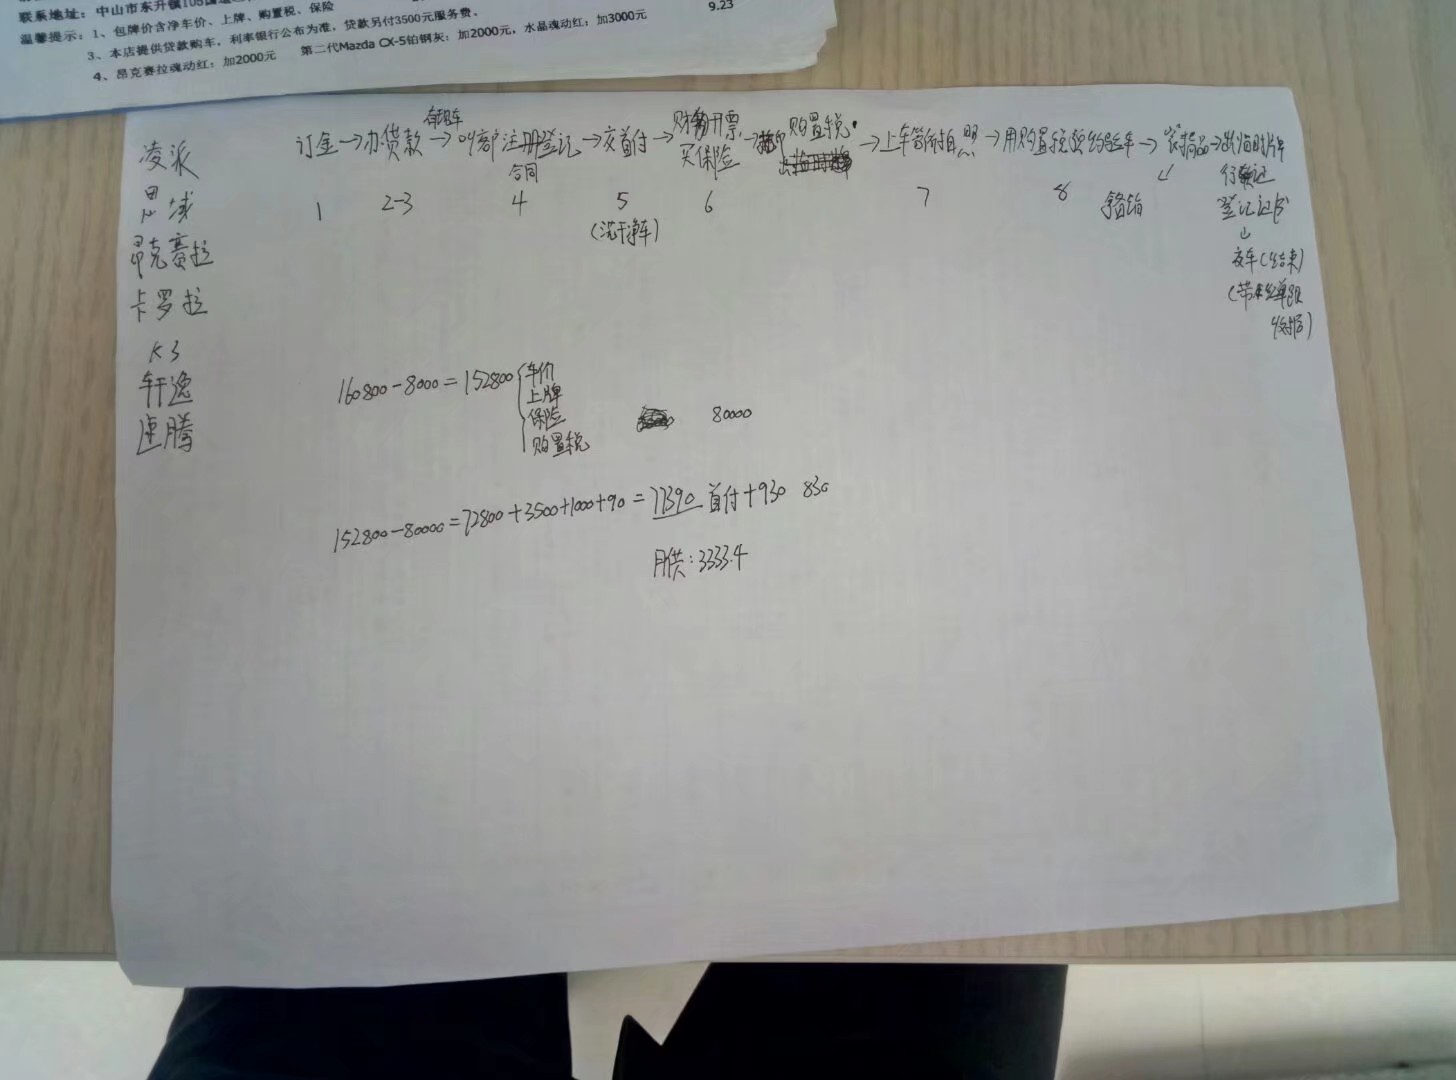 联系地址：中山市东升镇105国道
温馨提示：1、包牌价含净车价、上牌、购置税、保险
3、本店提供贷款购车，利率银行公布为准，贷款另付3500元服务费。
4、昂克赛拉魂动红：加2000元 第二代Mazda CX-5铂钢灰：加2000元，水晶魂动红：加3000元
9.23
凌派
思域
昂克赛拉
卡罗拉
K3
轩逸
速腾
订金→办贷款→ 注册登记→交首付→财务开票→ 购置税 →上车管所拍照→用购置税预约验车→装精品→出临时牌
合同
买保险
行驶证
登记证书
↓
交车(结束)
1 2-3 4 5 6 7 8
(洗干净车)
160800-8000=152800
车价
上牌
保险
购置税
80000
152800-80000=72800+3500+1000+90=77390 首付+930 830
月供：3333.4